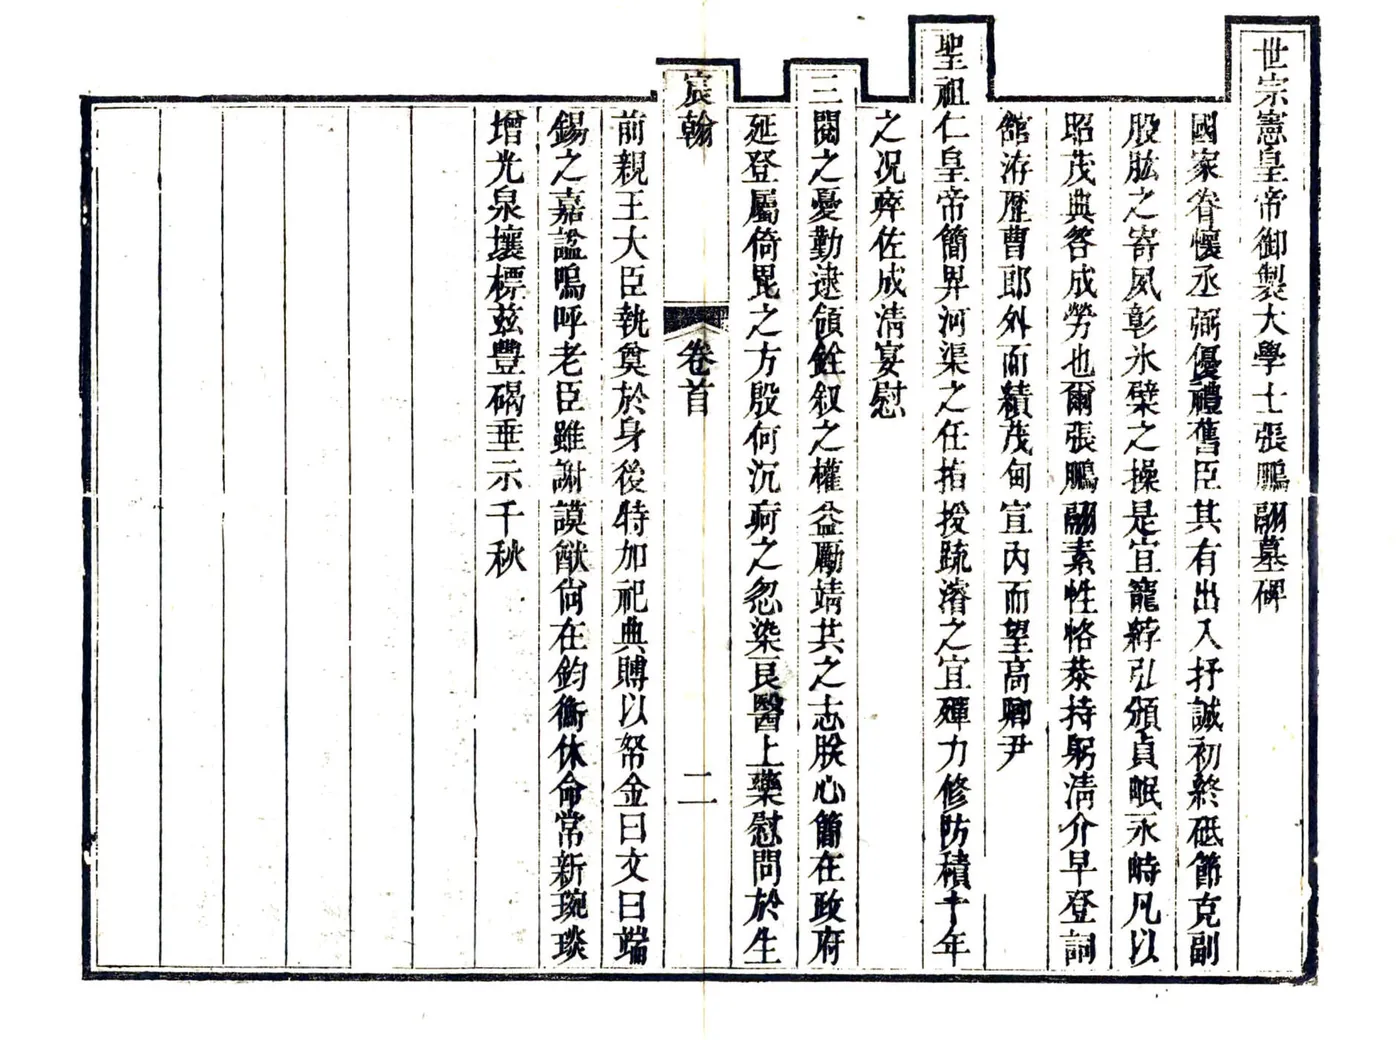 世宗憲皇帝御製大學士張鵬翮墓碑
國家眷懷丞弼優禮舊臣其有出入抒誠初終砥節克副
股肱之寄夙彰氷檗之操是宜寵綍弘頒貞珉永峙凡以
昭茂典答成勞也爾張鵬翮素性恪恭持躬清介早登詞
館洊歴曹郎外而績茂甸宣內而望高卿尹
聖祖仁皇帝簡畀河渠之任指授疏濬之宜殫力修防積十年
之况瘁佐成清宴慰
三閱之憂勤逮領銓叙之權益勵靖共之志朕心簡在政府
延登屬倚毘之方殷何沉疴之忽染良醫上藥慰問於生
宸翰
卷首
二
前親王大臣執奠於身後特加祀典賻以帑金曰文曰端
錫之嘉謚嗚呼老臣雖謝謨猷尙在鈞衡休命常新琬琰
增光泉壤標茲豐碣垂示千秋